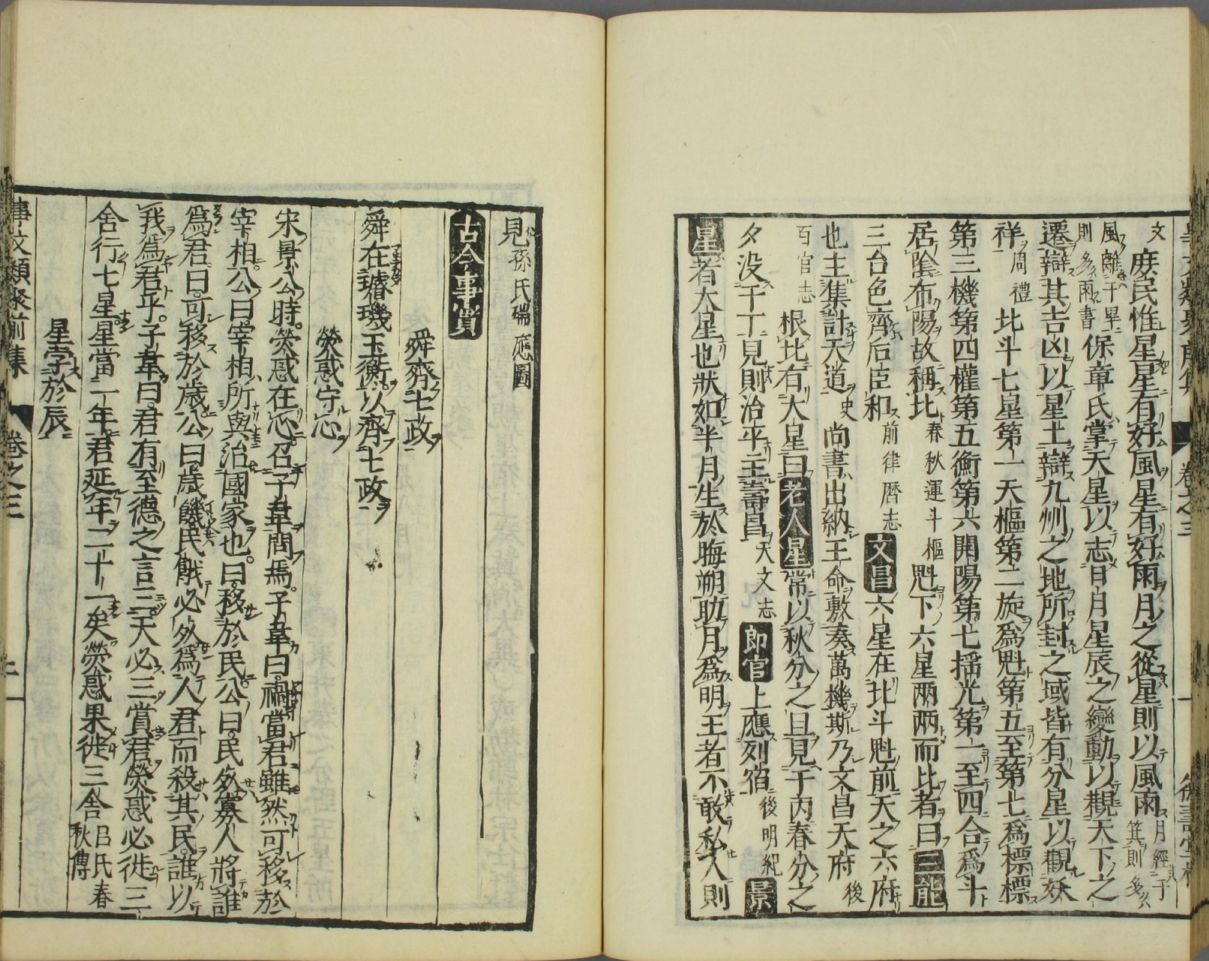 文 庶民惟星星有好風星有好雨月之從星則以風雨 月經于箕則多
風離于畢則多雨書 保章氏掌天星以志日月星辰之變動以觀天下之
遷辯其吉凶以星土辯九州之地所封之域皆有分星以觀妖
祥 周禮 北斗七星第一天樞第二旋爲魁第五至第七爲標標
第三機第四權第五衡第六開陽第七搖光第一至四合爲斗
居陰布陽故稱北 春秋運斗樞 魁下六星兩兩而比者曰三能
三台色齊后臣和 前律曆志 文昌六星在北斗魁前天之六府
也主集計天道 史 尚書出納王命敷奏萬機斯乃文昌天府 後
百官志 根比有大星曰老人星常以秋分之旦見于丙春分之
夕没于丁見則治平主壽昌 天文志 即官上應列宿 後明紀 景
星者大星也狀如半月生於晦朔助月為明王者不敢私人則
見 孫氏瑞應圖
古今事實
舜齊七政
舜在璿璣玉衡以齊七政
熒惑守心
宋景公時熒惑在心召子韋問焉子韋曰禍當君雖然可移於
宰相公曰宰相所與治國家也曰移於民公曰民死寡人將誰
爲君曰可移於歲公曰歲饑民餓必死爲人君而殺其民誰以
我爲君乎子韋曰君有至德之言三天必三賞君熒惑必徙三
舍行七星星當一年君延年二十一矣熒惑果徙三舍 呂氏春秋傳
星孛於辰
事文類聚前集 卷之三